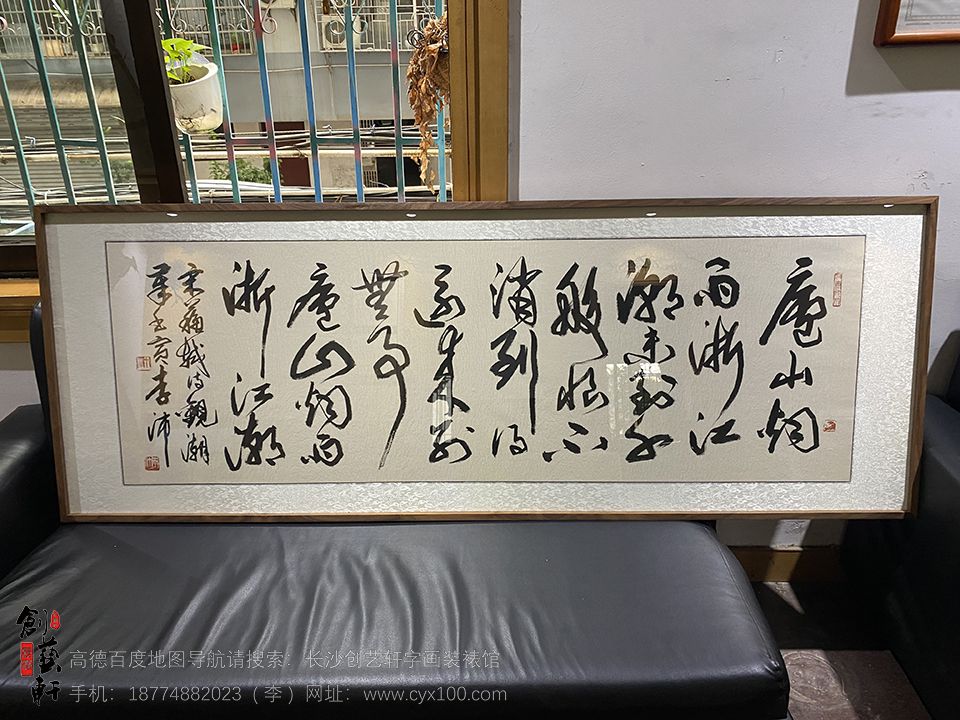 廬山烟
雨浙江
潮未到千
般恨不
消到得
還来别
無事
廬山烟雨
浙江潮
宋蘇軾诗觀潮
李沛
創藝軒
高德百度地图导航请搜索：长沙创艺轩字画装裱馆
手机：18774882023（李）网址：www.cyx100.com